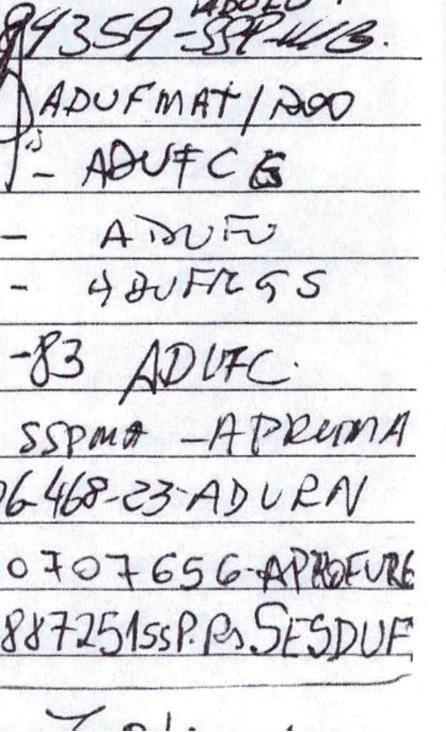 94359-SSP-MG.
ADUFMAT/ROO
- ADUFCG
- ADUFU
- ADUFRGS
-83 ADUFC.
SSPMA - APRUMA
06468-23-ADURN
0707656-APROFURG
887251SSP.Ba SESDUF